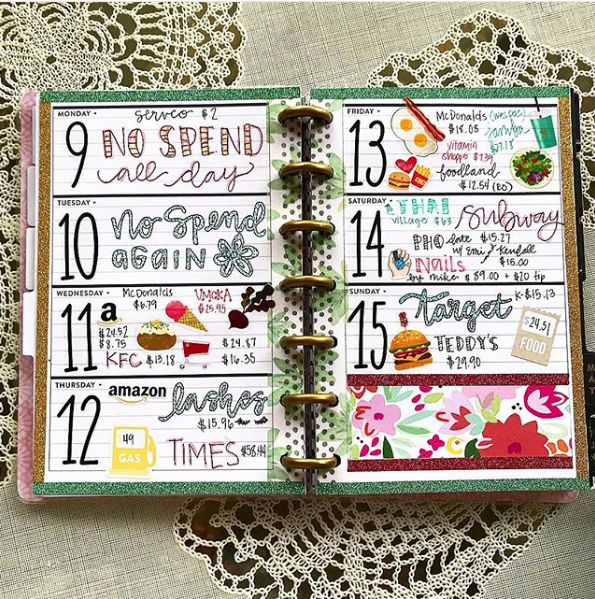 MONDAY
9
servco $2
NO SPEND
all day
TUESDAY
10
no Spend
AGAIN
WEDNESDAY
11
McDonalds
$6.79
VMOKA
$25.95
a
$24.52
$8.75
KFC $13.18
$24.87
$16.35
THURSDAY
12
amazon
lashes
$15.96
49
GAS
TIMES $58.44
FRIDAY
13
McDonalds
$18.05
Jamba
$7.18
vitamin
shoppe $139
foodland
$12.54 (EO)
SATURDAY
14
THAI
village $63
Subway
PHO date $15.27
w/ Emi & Kendall
$15.00
Nails
by mike $89.00 + $20 tip
SUNDAY
15
target
K-$15.13
TEDDY'S
$29.90
$24.51
FOOD